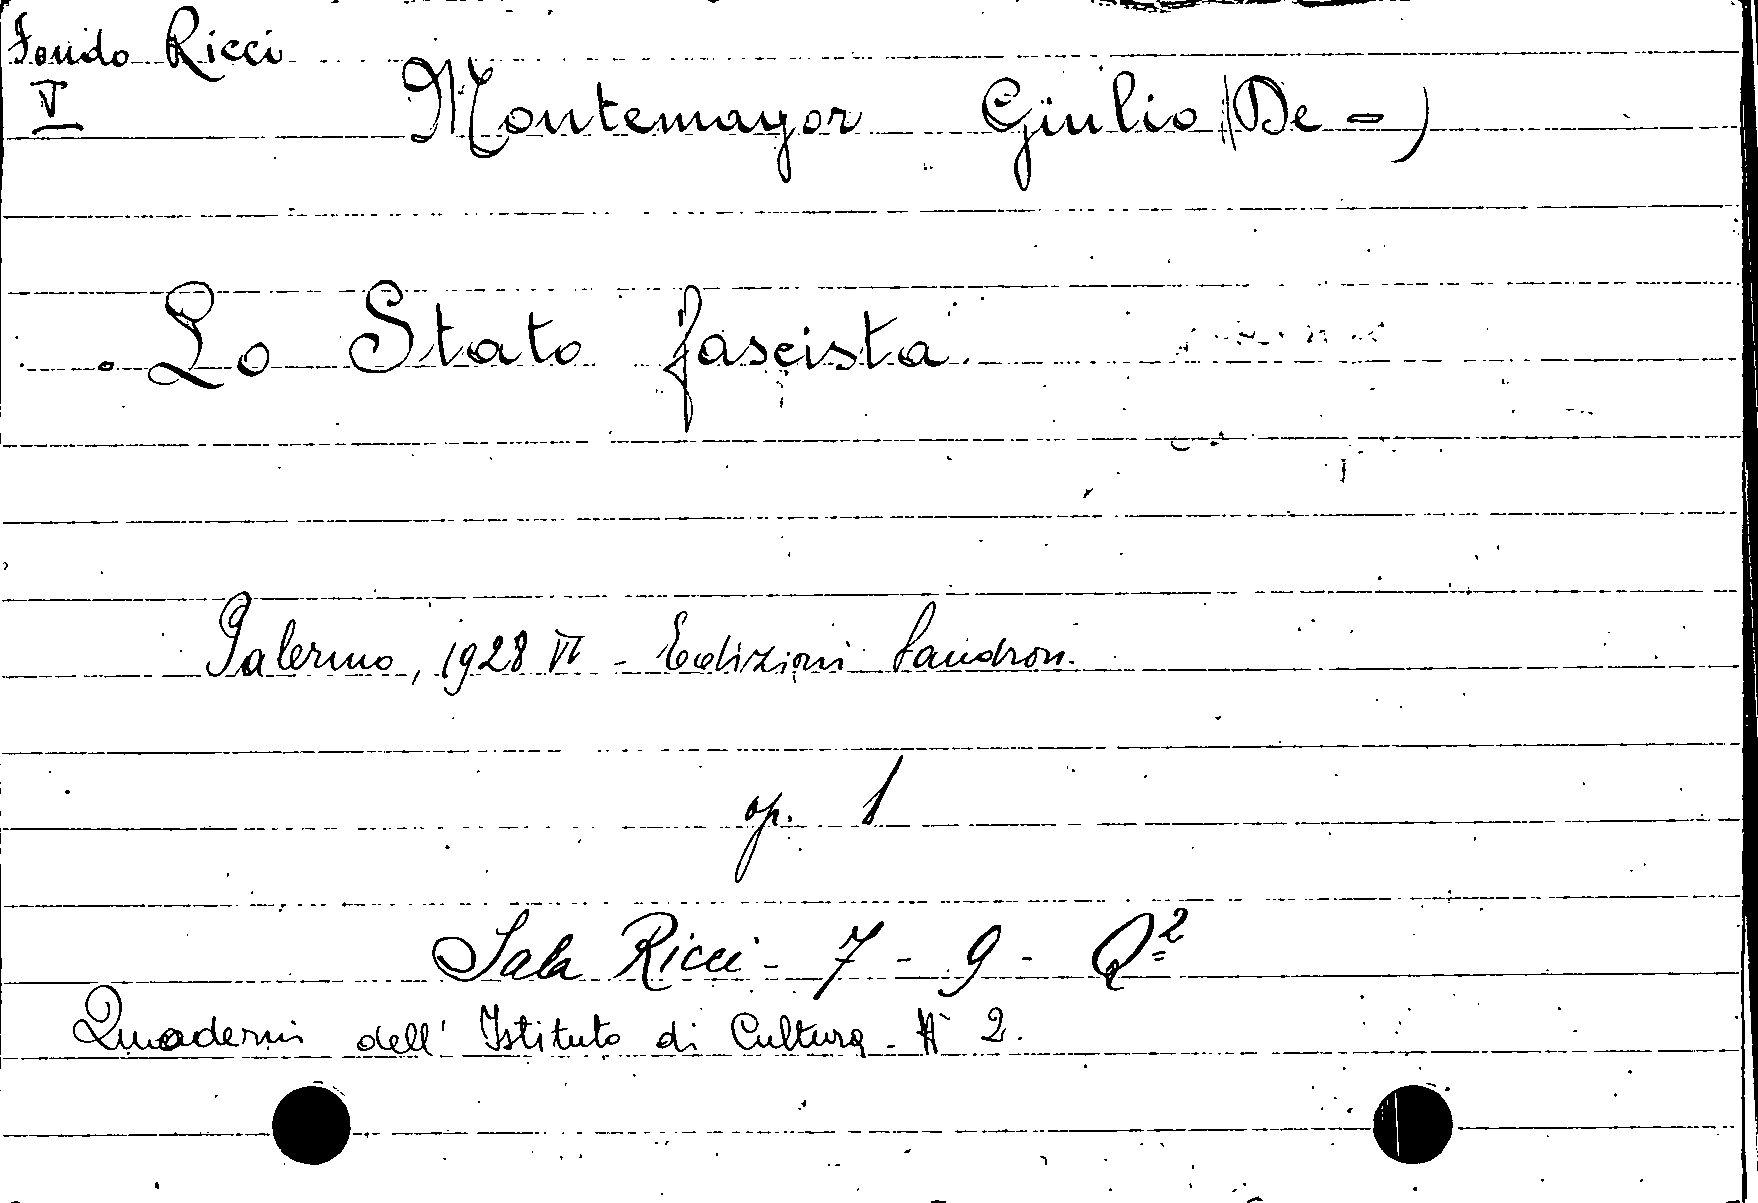 Fondo Ricci
V
Montemayor Giulio (De =)
Lo Stato fascista
Palermo, 1928 VI - Edizioni Sandron.
op. 1
Sala Ricci - 7 - 9 - Q²
Quaderni dell' Istituto di Cultura - N° 2.